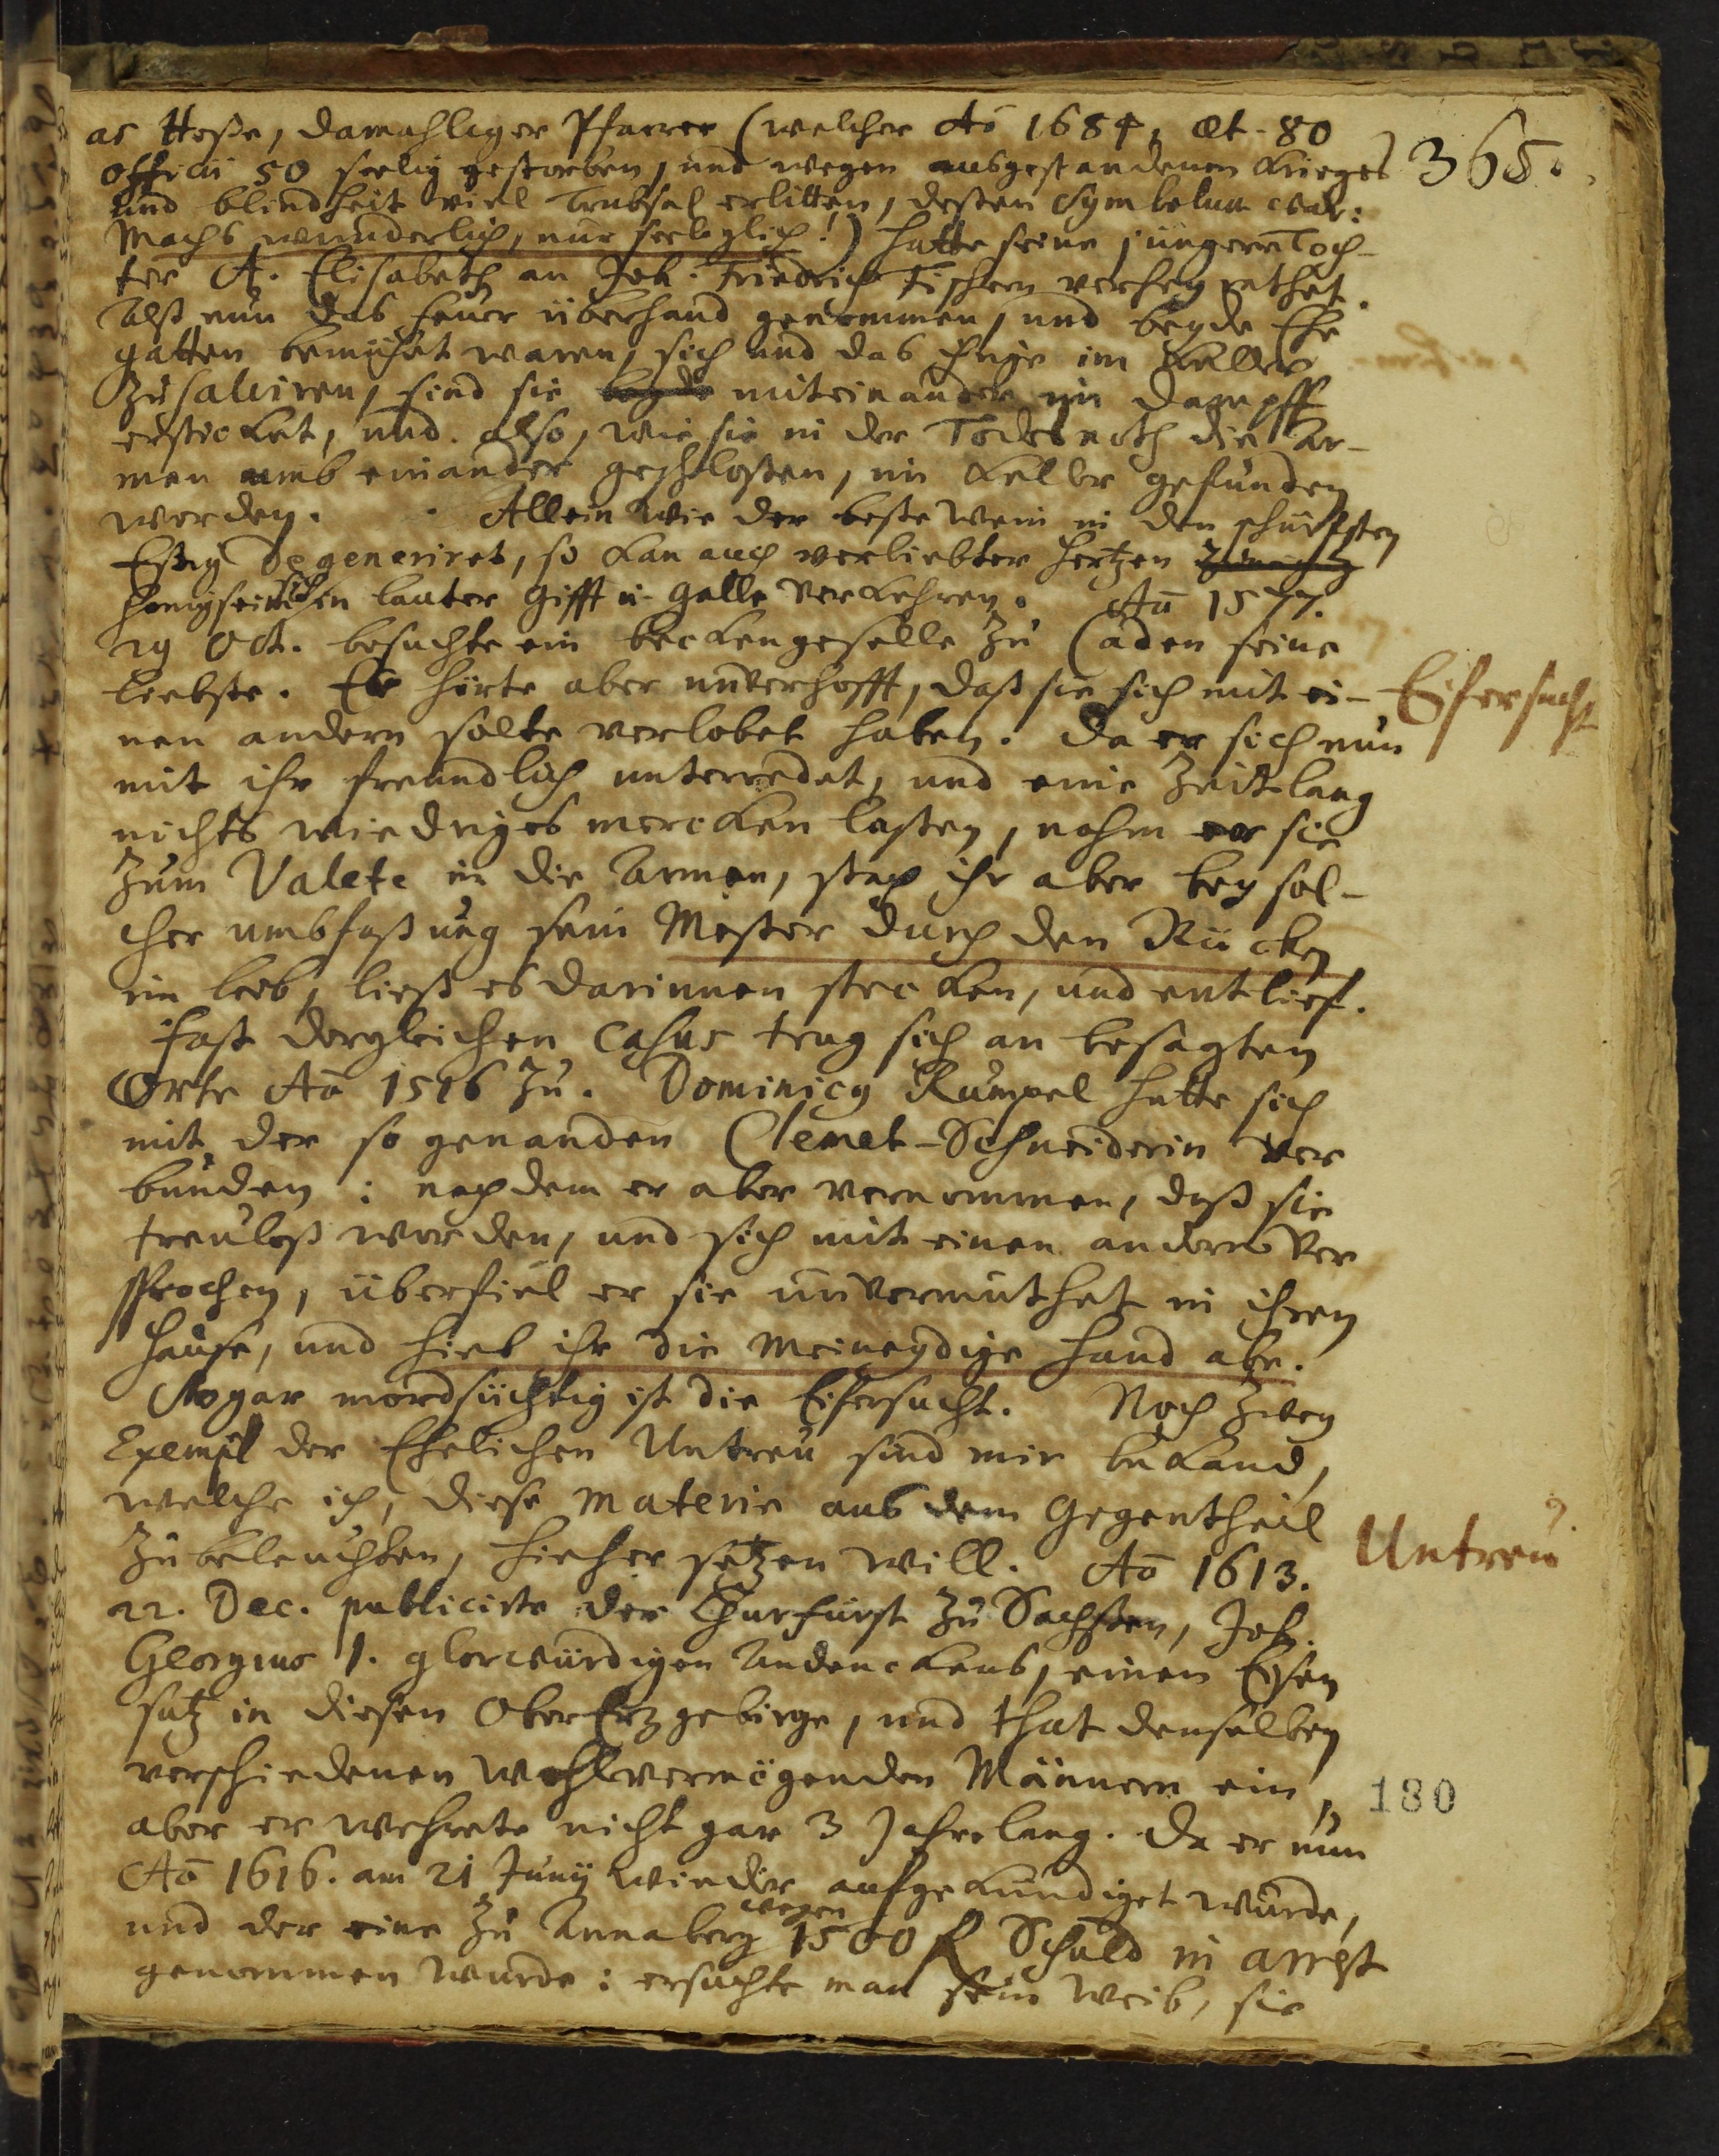 as Heße, damahliger Pfarrer (welcher Aō 1684, æt. 80
365.
officii 50 seelig gestorben, und wegen ausgestandenen Krieges
und blindheit viel Trübsal erlitten, deßen Symbolum war:
Machs wunderlich, nur seeliglich!) hatte seine jüngere Toch-
ter A. Elisabeth an Joh. Friedrich Fischern verheyrathet.
Alß nun das Feuer überhand genommen, und beyde Ehe
gatten bemühet waren, sich und das ihrige im Keller
zu salviren, sind sie beyde miteinander im Dampff
ersticket, und also, wie sie in der Todesnoth die Ar-
men umb einander geschloßen, im Keller gefunden
worden. Allein wie der beste Wein in den schärfsten
Eßig degeneriret, so kan auch verliebter Hertzen
Honigseim sich in lauter Gifft u. Galle verkehren. Aō 1577.
29 Oct. besuchte ein beckengeselle zu Caden seine
liebste. Er hörte aber unverhofft, daß sie sich mit ei-
Eifersucht
nen andern solte verlobet haben. Da er sich nun
mit ihr freundlich unterredet, und eine Zeitlang
nichts wiedriges mercken laßen, nahm er sie
zum Valete in die Armen, stach ihr aber bey sol-
cher umbfaßung sein Meßer durch den Rücken
im leib, ließ es darinnen stecken, und entlief.
Fast dergleichen Casus trug sich an besagten
Orte Aō 1516 zu. Dominicg Rumpel hatte sich
mit der so genanden Clemet-Schneiderin ver
bunden: nachdem er aber vernommen, daß sie
treuloß worden, und sich mit einen andern ver
sprochen, überfiel er sie unvermuthet in ihren
Hause, und hieb ihr die meineydige Hand abe.
Sogar mordsüchtig ist die Eifersucht. Noch zwey
Exempel der Ehelichen Untreu sind mir bekand,
welche ich, diese materie aus dem Gegentheil
zu beleuchten, hieher setzen will. Aō 1613.
Untreu
22. Dec. publicirte der Churfürst zu Sachßen, Joh.
Georgius 1. glorwürdigen Andenckens, einen Eisen
satz in diesen OberErzgebirge, und that denselben
verschiedenen wohlvermögenden Männern ein,
180
aber er wehrete nicht gar 3 Jahrelang. Da er nun
Aō 1616. am 21 Junij wieder aufgekündiget wurde,
und der eine zu Annaberg wegen 1500 fl Schuld in arrest
genommen wurde: ersuchte man sein Weib, sie